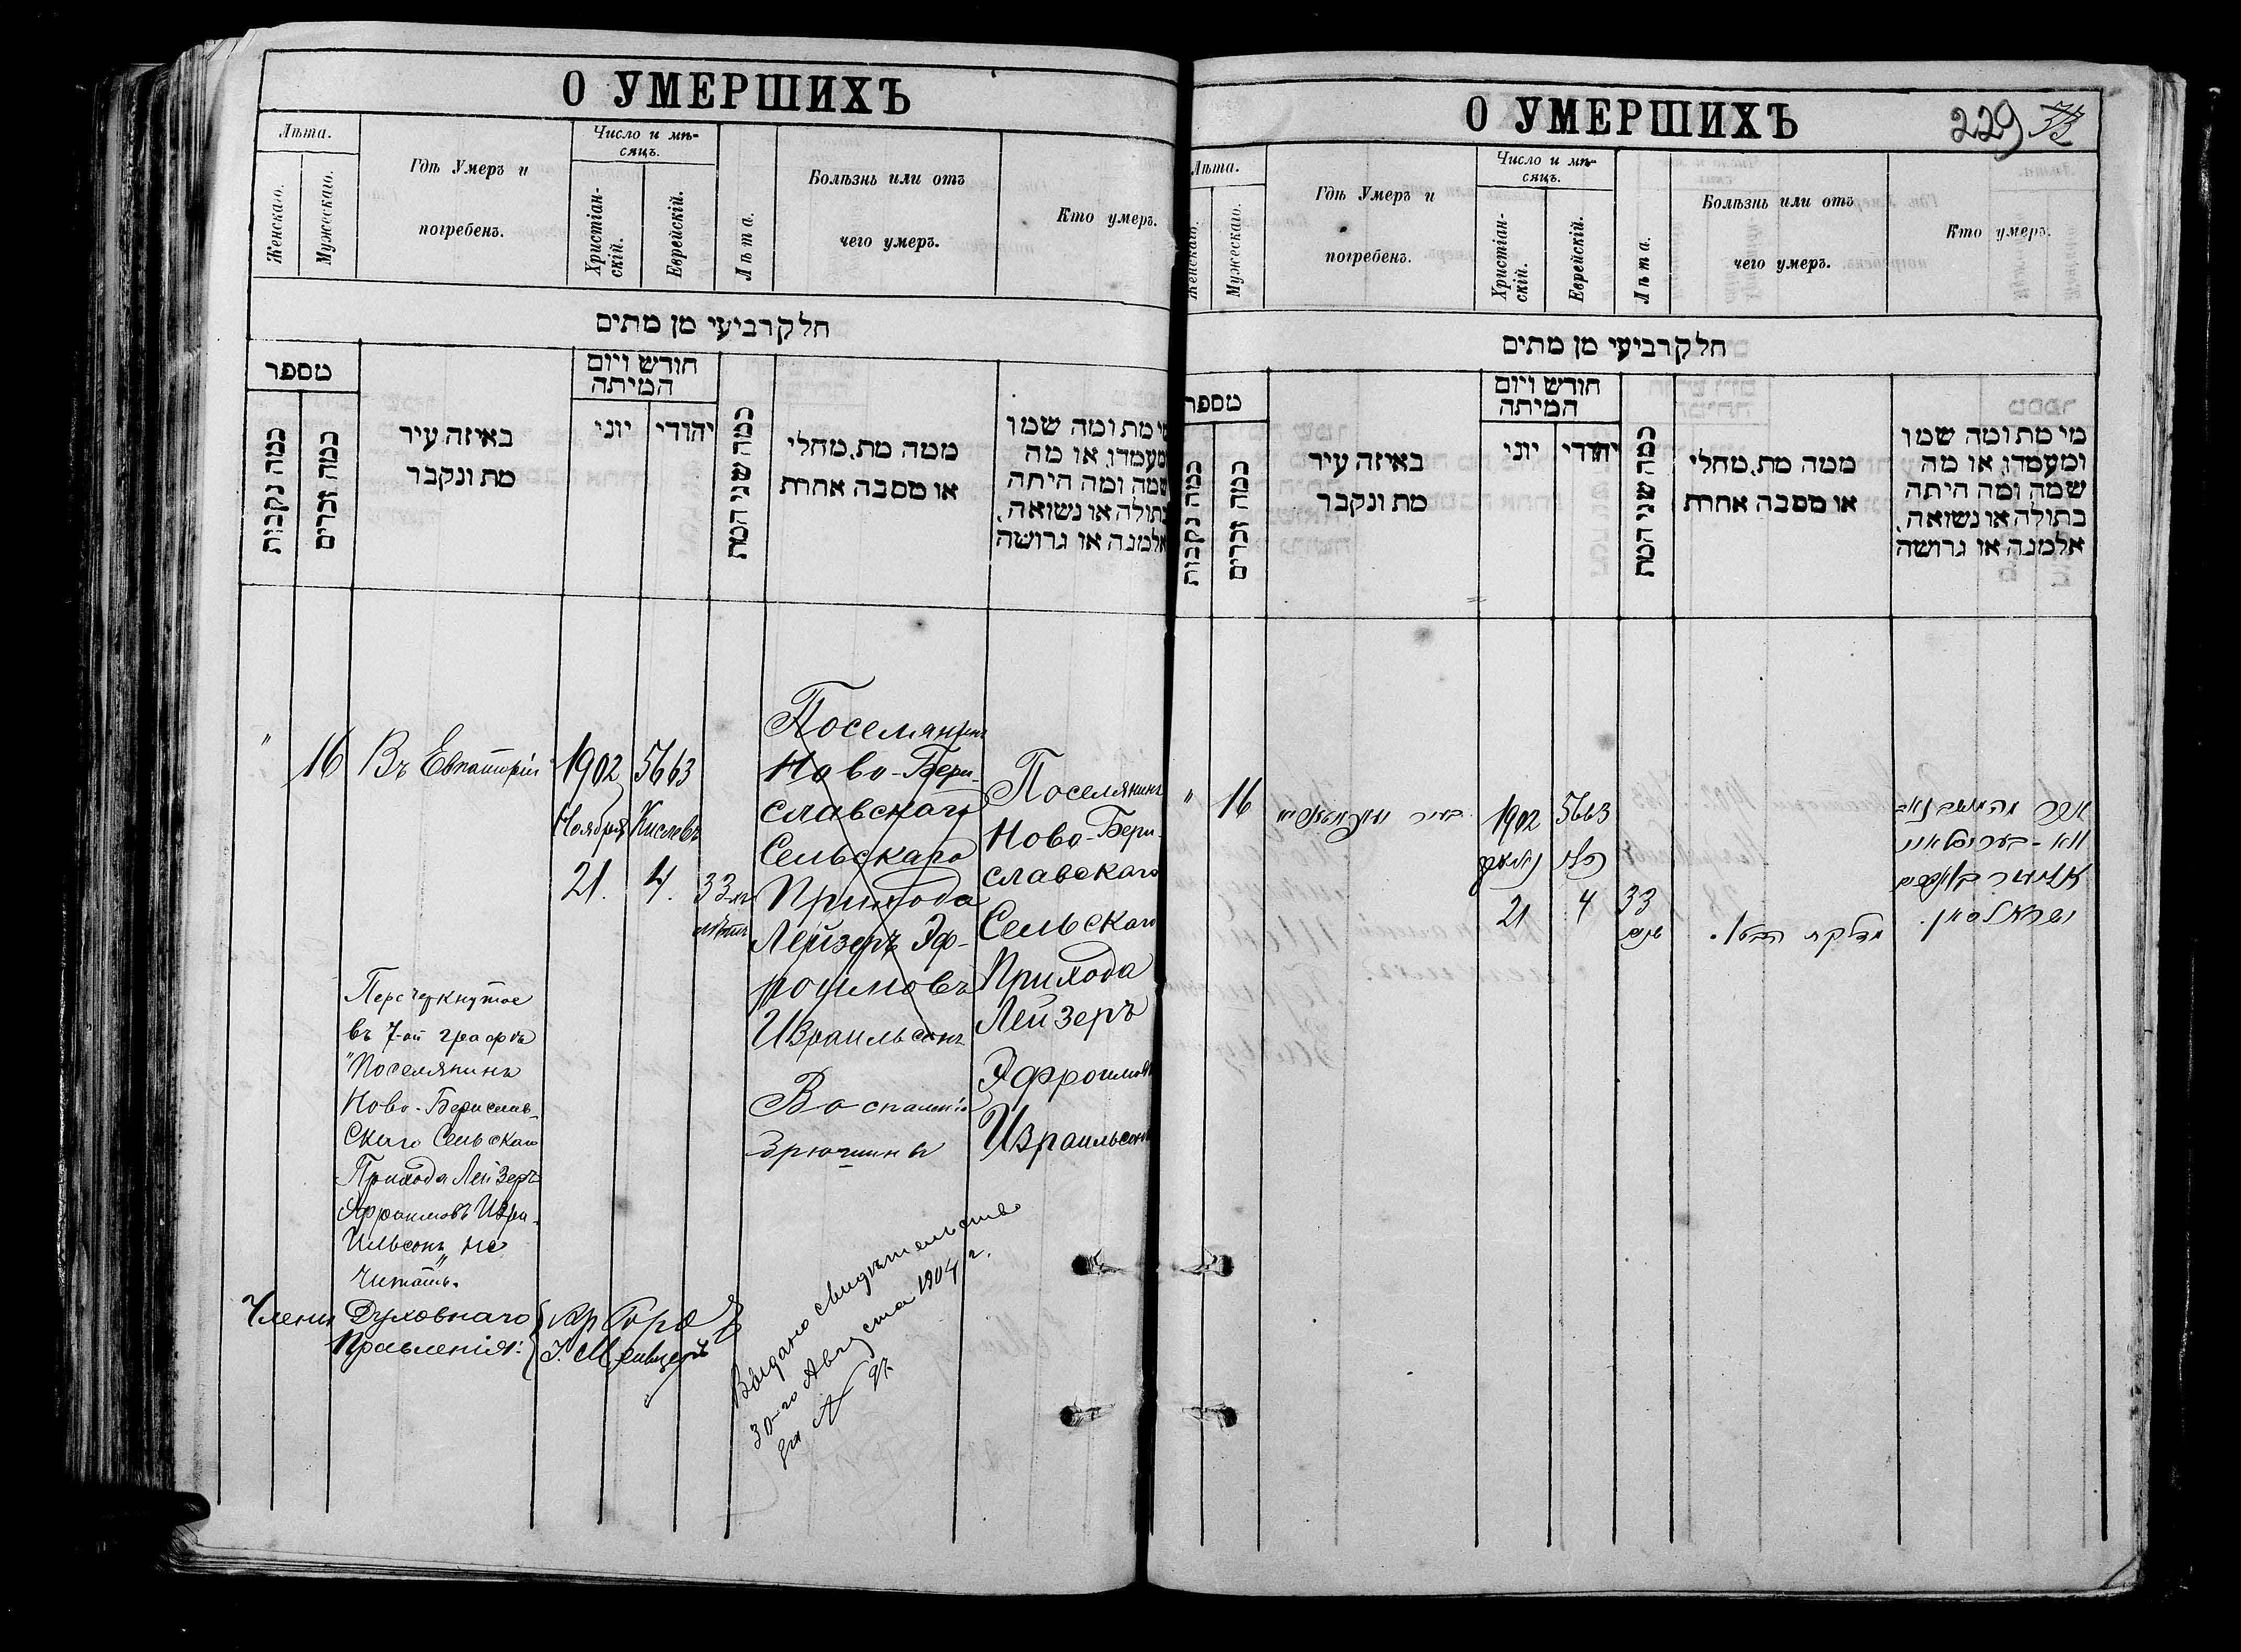 О УМЕРШИХЪ
Лѣта.
Женскаго.
Мужескаго.
Гдѣ Умеръ и
погребенъ.
Число и мѣ-
сяцъ.
Христіан-
скій.
Еврейскій.
Лѣта.
Болѣзнь или отъ
чего умеръ.
Кто умеръ.
חלק רביעי מן מתים
מספר
כמה נקבות
כמה זכרים
באיזה עיר
מת ונקבר
חודש ויום
המיתה
יוני
יהודי
כמה שני המת
ממה מת, מחלי
או מסבה אחרת
מי מת ומה שמו
ומעמדו, או מה
שמה ומה היתה
בתולה או נשואה,
אלמנה או גרושה
"
16
Въ Евпаторіи
1902
Ноября
21.
5663
Кислевъ
4.
33-хъ
лѣтъ
Поселянинъ
Ново-Бери-
славскаго
Сельскаго
Прихода
Лейзеръ Эф-
роимовъ
Израильсонъ
Воспаленіе
брюшины
Поселянинъ
Ново-Бери-
славскаго
Сельскаго
Прихода
Лейзеръ
Эфроимовъ
Израильсонъ
Перечеркнутое
въ 7-ой графѣ
"Поселянинъ
Ново-Берислав-
скаго Сельскаго
Прихода Лейзеръ
Эфроимовъ Изра-
ильсонъ" не
читать.
Члены Духовнаго
Правленія:
Выдано свидѣтельство
30-го Августа 1904 г.
О УМЕРШИХЪ
229
33
Лѣта.
Женскаго.
Мужескаго.
Гдѣ Умеръ и
погребенъ.
Число и мѣ-
сяцъ.
Христіан-
скій.
Еврейскій.
Лѣта.
Болѣзнь или отъ
чего умеръ.
Кто умеръ.
חלק רביעי מן מתים
מספר
כמה נקבות
כמה זכרים
באיזה עיר
מת ונקבר
חודש ויום
המיתה
יוני
יהודי
כמה שני המת
ממה מת, מחלי
או מסבה אחרת
מי מת ומה שמו
ומעמדו, או מה
שמה ומה היתה
בתולה או נשואה,
אלמנה או גרושה
"
16
בעיר
1902
21
5663
כסלו
4
33
שנים
מדלקת הבטן.